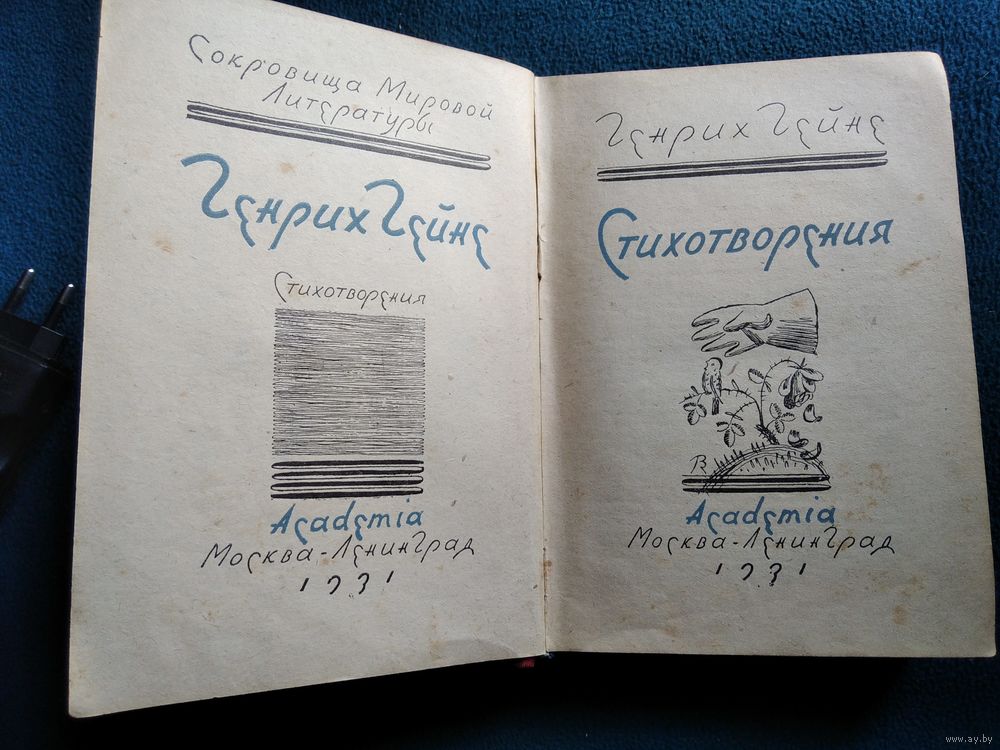 Сокровища Мировой
Литературы
Генрих Гейне
Стихотворения
Academia
Москва-Ленинград
1931
Генрих Гейне
Стихотворения
Academia
Москва-Ленинград
1931
www.ay.by